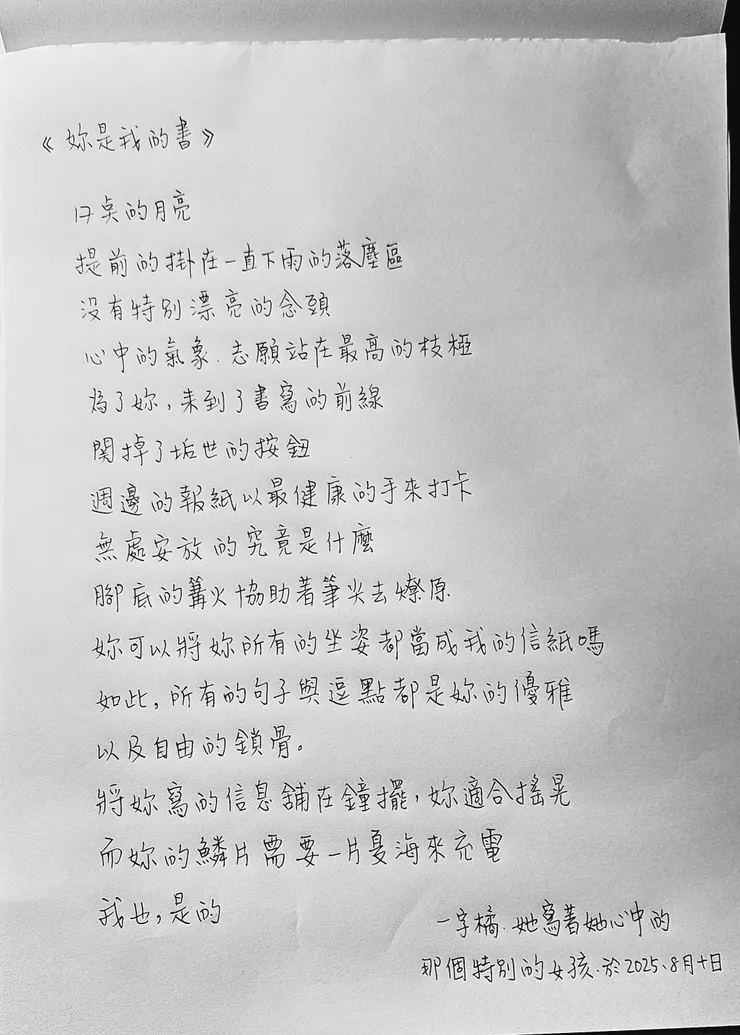 《妳是我的書》
17点的月亮
提前的掛在一直下雨的落塵區
沒有特別漂亮的念頭
心中的氣象.志願站在最高的枝極
為了妳,來到了書寫的前線
関掉了垢世的按鈕
週邊的報紙以最健康的手來打卡
無處安放的究竟是什麼
腳底的篝火協助著筆尖去燎原.
妳可以將妳所有的坐姿都當成我的信紙嗎
如此,所有的句子與逗點都是妳的優雅
以及自由的鎖骨。
將妳寫的信息舖在鐘擺,妳適合搖晃
而妳的鱗片需要一片夏海來充電
我也,是的
一字橘.她寫著她心中的
那個特別的女孩.於2025.8月十日